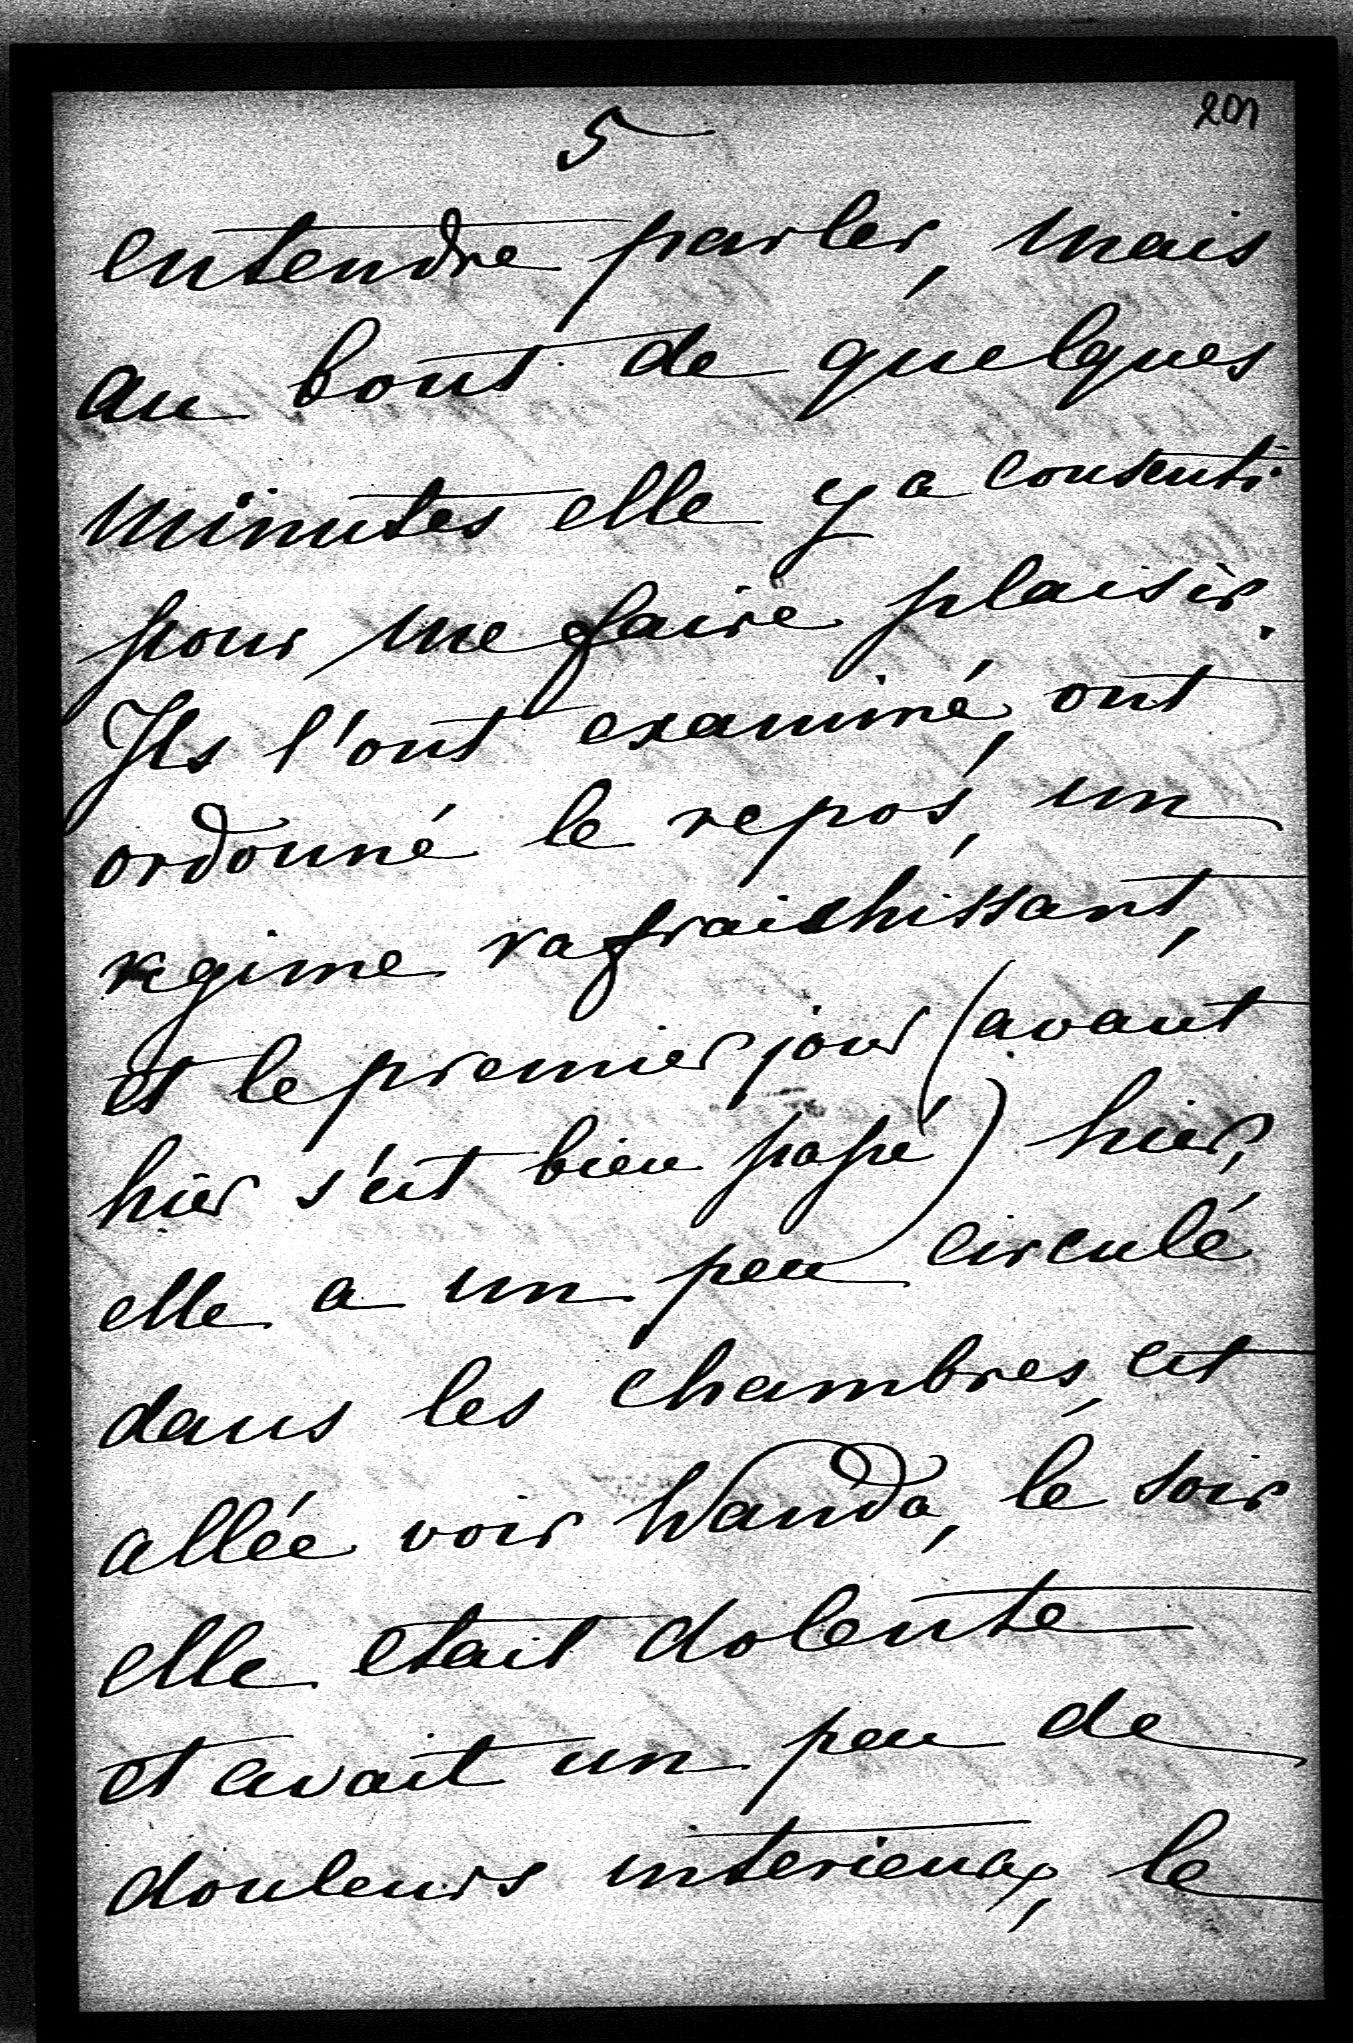 201
5
entendre parler, mais
au bout de quelques
minutes elle y a consenti
pour me faire plaisir.
Ils l'ont examiné, ont
ordonné le repos, un
regime rafraichissant,
et le premier jour (avant
hier s'est bien passé) hier,
elle a un peu circulé
dans les chambres, est
allée voir Wanda, le soir
elle etait dolente
et avait un peu de
douleurs interieurs, le